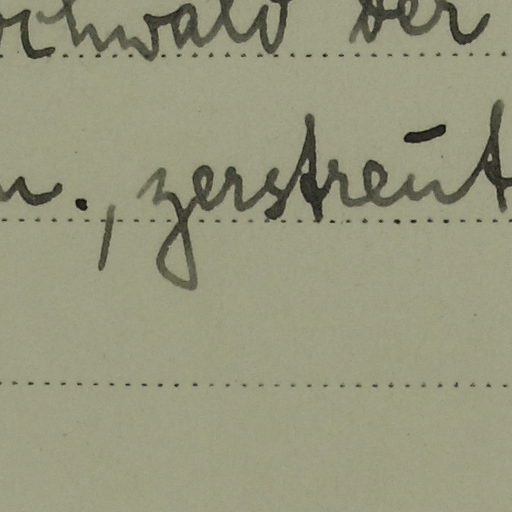 ochwald der
m., zerstreut